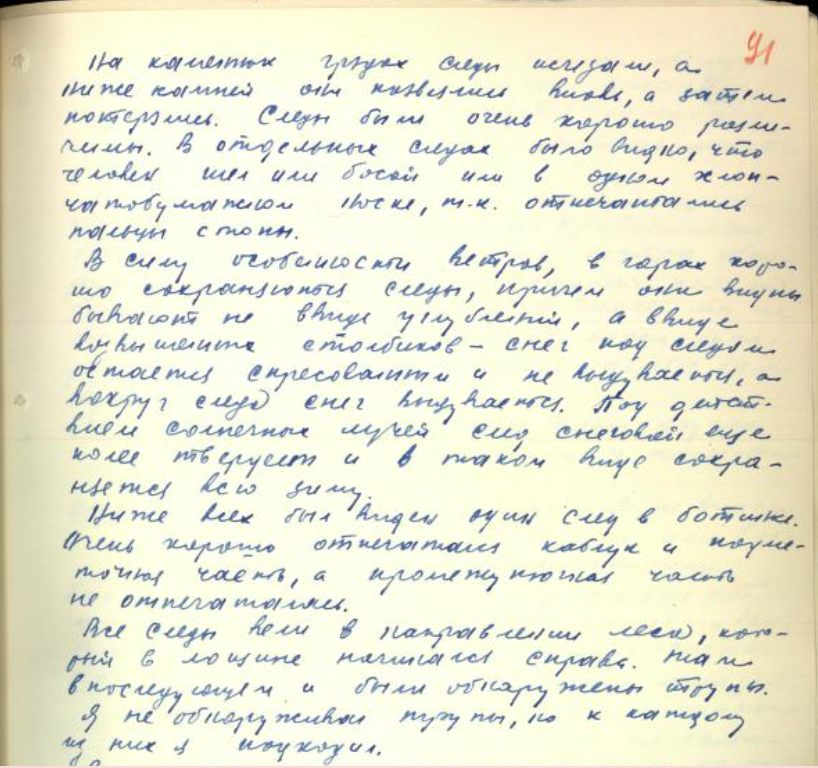 91
На каменных грядах следы исчезали, а
ниже камней они появлялись вновь, а затем
потерялись. Следы были очень хорошо разли-
чимы. В отдельных следах было видно, что
человек шел или босой или в одном хлоп-
чатобумажном носке, т.к. отпечатались
пальцы стопы.
В силу особенности ветров, в горах хоро-
шо сохраняются следы, причем они видны
бывают не ввиде углублений, а ввиде
возвышенных столбиков – снег под следом
остается спресованным и не выдувается, а
вокруг следа снег выдувается. Под дейст-
вием солнечных лучей след снеговой еще
более твердеет и в таком виде сохра-
няется всю зиму.
Ниже всех был виден один след в ботинке.
Очень хорошо отпечатался каблук и подме-
точная часть, а промежуточная часть
не отпечаталась.
Все следы вели в направлении леса, кото-
рый в лощине начинался справа. Там
впоследующем и были обнаружены трупы.
Я не обнаруживал трупы, но к каждому
из них я подходил.